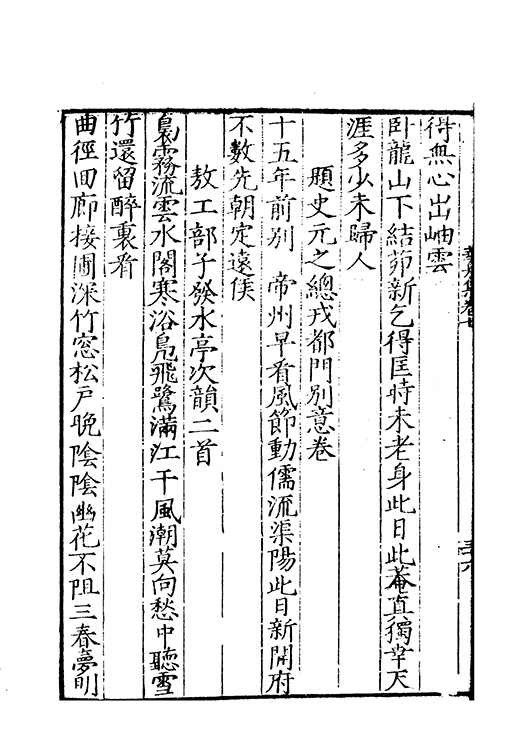 得無心出岫雲
臥龍山下結茆新乞得匡時未老身此日此菴直獨幸天
涯多少未歸人
題史元之總戎都門別意卷
十五年前別 帝州早看風節動儒流渠陽此日新開府
不數先朝定遠侯
敖工部子發水亭次韻二首
裊霧流雲水閣寒浴鳧飛鷺滿江干風潮莫向愁中聽雪
竹還留醉裏看
曲徑回廊接圃深竹窓松戶晚陰陰幽花不阻三春夢明